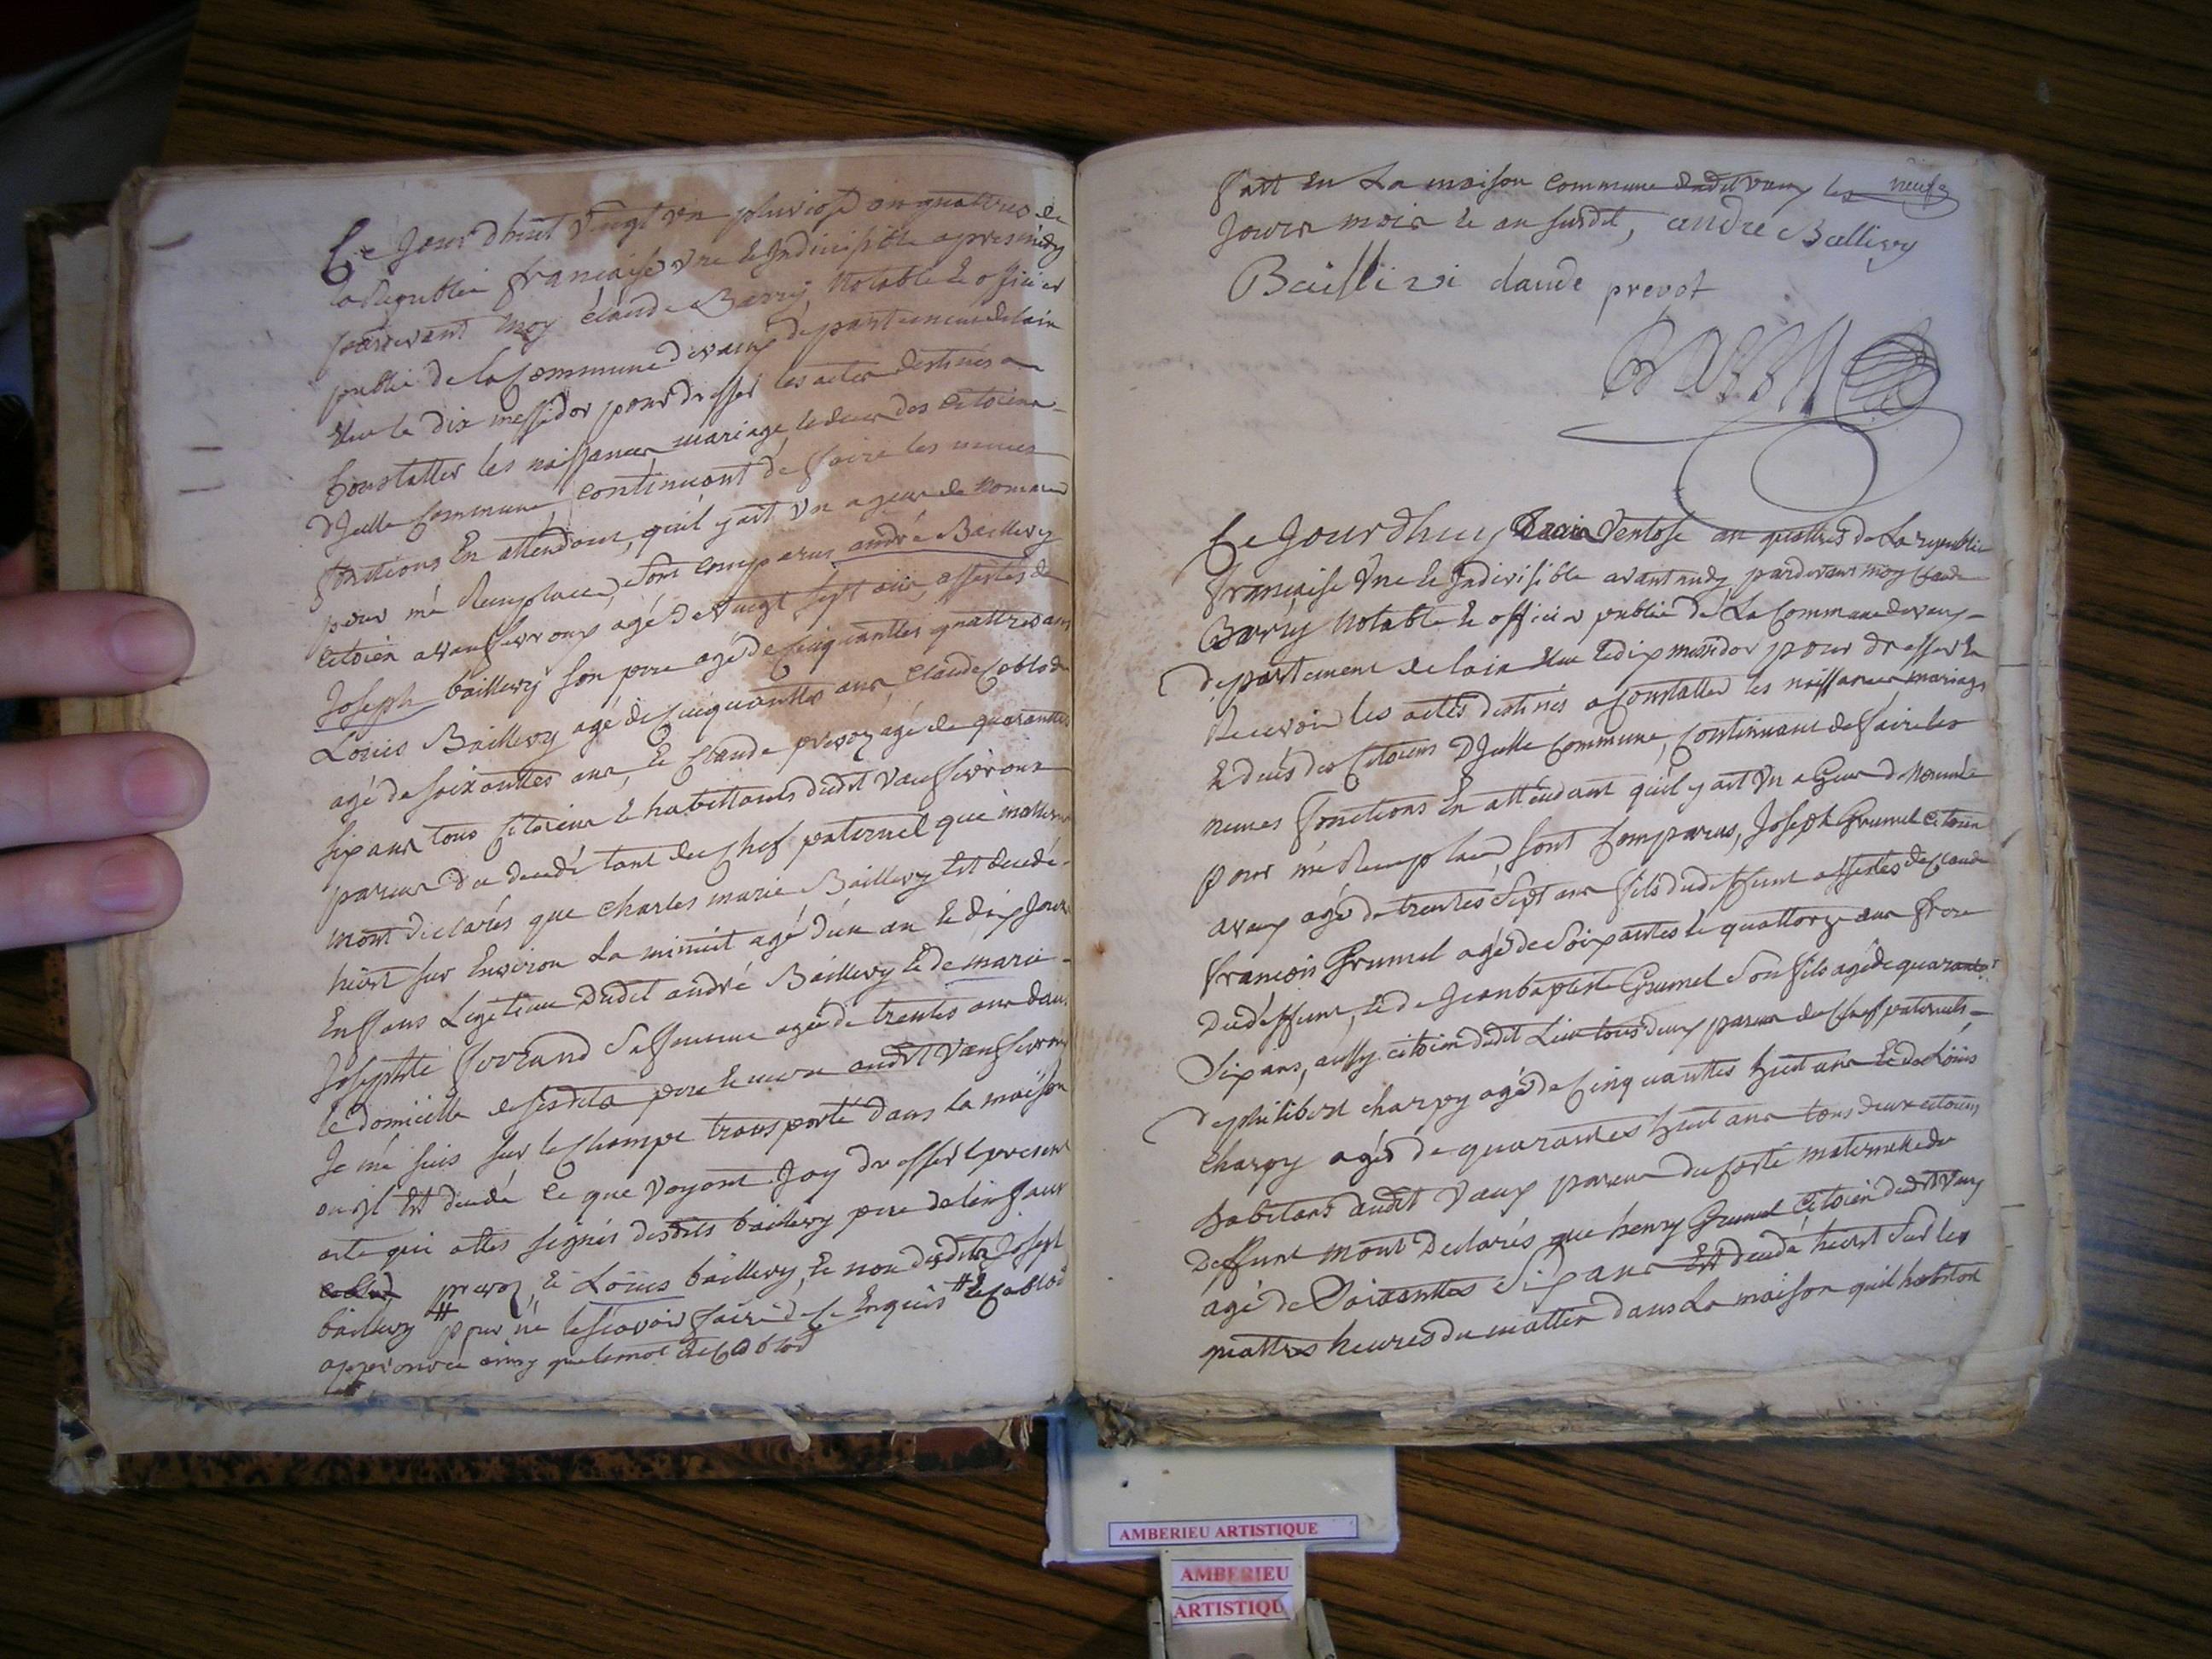 Ce Jour dhuit vingt un pluviose an quattres de
la Republiq francaise une & Indivisible apres midy
pardevant moy claude Barry Notable & officier
public de la Commune de vaux departement delain
Elue le dix messidor pour dresser les actes destinés a
Constatter les naissances mariage & deces des citoiens
d'Jcelle commune continuant de faire les memes
fonctions En attendant quil y ait un agent de nommé
pour mé Remplacer, sont comparus andré Baillivy
citoien a vaux fevroux agé de vingt sept ans, assistés de
Joseph baillivy son pere agé de cinquanttes quattres ans
Louis Baillivy agé de cinquanttes ans, claude Coblod
agé de soixanttes ans, & claude prevoz agé de quaranttes
six ans tous citoiens & habittants dudit vaux fevroux
parens du decedé tant du chef paternel que maternel
mont declarés que charles marie Baillivy Est decedé
hiert sur Environ la minuit agé d'un an & dix Jours
Enffans Legetime dudit andré Baillivy & de marie
Josephte ferrand Sa femme agée de trentes ans dans
le domicille de sesdits pere & mere audit vaux fevroux
Je mé suis sur le champt transporté dans la maison
ou jl Est decedé ce que voyant Jay dressé le present
acte qui attes signés desdits baillivy pere de lenffant
prevoz, & Louis baillivy, & non desdits Joseph
baillivy # pour né le scavoir faire de ce Enquis # & Coblod
approuvée ainsy que le mot & Coblod
fait En La maison commune dudit vaux les neufs
Jours mois & an susdit, andre Ballivy
Baillivi claude prevot
Barry
Ce Jourdhuy trois ventose an quattres de La republiq
francaise une & Indivisible avant midy, pardevant moy claude
Barry Notable & officier public de La Commune de vaux
departement de lain Elue le dix messidor pour dresser &
Recevoir les actes destinés a constatter les naissances mariage
& decés des citoiens d'Jcelle commune, continuant de faire les
memes fonctions En attendant quil y ait un agent de nommée
pour mé Remplacer sont comparus, Joseph Grumel citoien
a vaux agé de trentes sept ans fils dudeffunt assistés de claude
francois Grumel agé de soixanttes & quattorze ans frere
dudeffunt, & de Jean baptiste Grumel son fils agé de quarantes
six ans, aussy citoien dudit Lieu tous deux parens du chef paternels
de philibert charpy agé de cinquanttes huit ans & de Louis
charpy agés de quarantes huit ans tous deux citoiens
habitans audit vaux parens du corté maternelle du
deffunt mont declarés que henry Grumel citoien dudit vaux
agé de soixanttes six ans Est decedé hiert sur les
quattres heures du mattin dans la maison quil habitoit
AMBERIEU ARTISTIQUE
AMBERIEU
ARTISTIQU